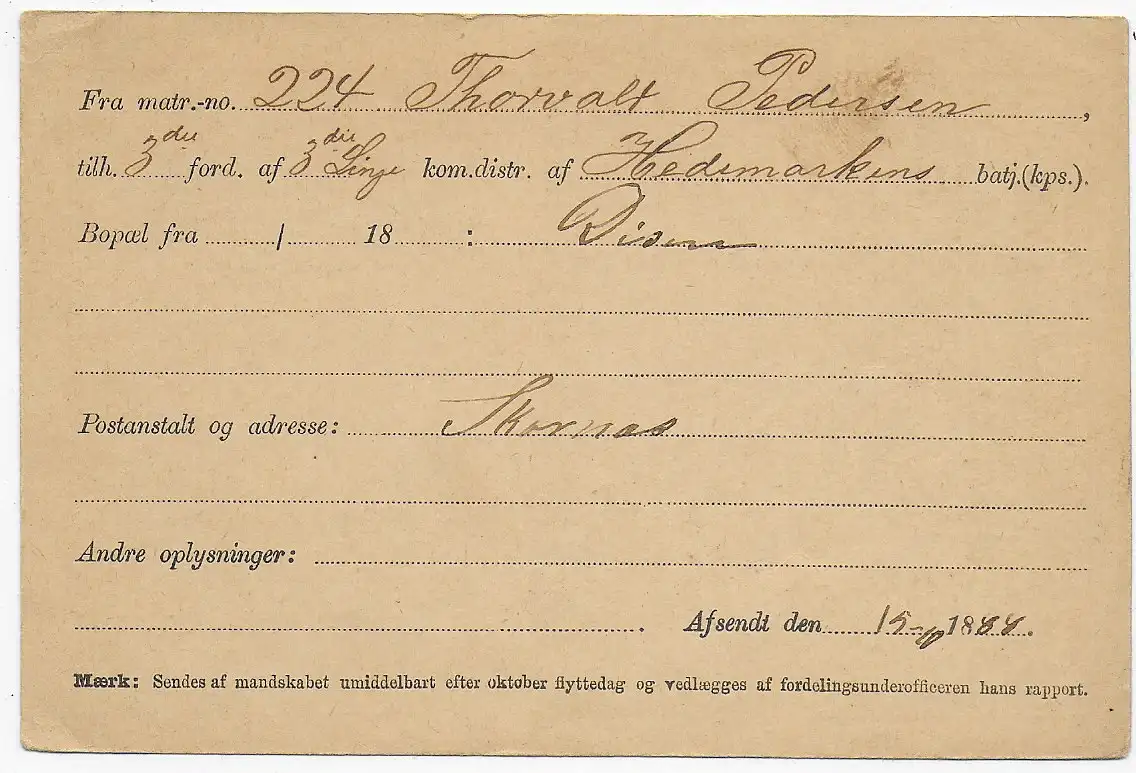 Fra matr.-no. 224 Thorvalt Pedersen,
tilh. 3die ford. af 3die Linje kom.distr. af Hedemarkens batj.(kps.).
Bopæl fra / 18 :
Postanstalt og adresse: Skarnæs
Andre oplysninger:
Afsendt den 15-10 1888.
Mærk: Sendes af mandskabet umiddelbart efter oktober flyttedag og vedlægges af fordelingsunderofficeren hans rapport.